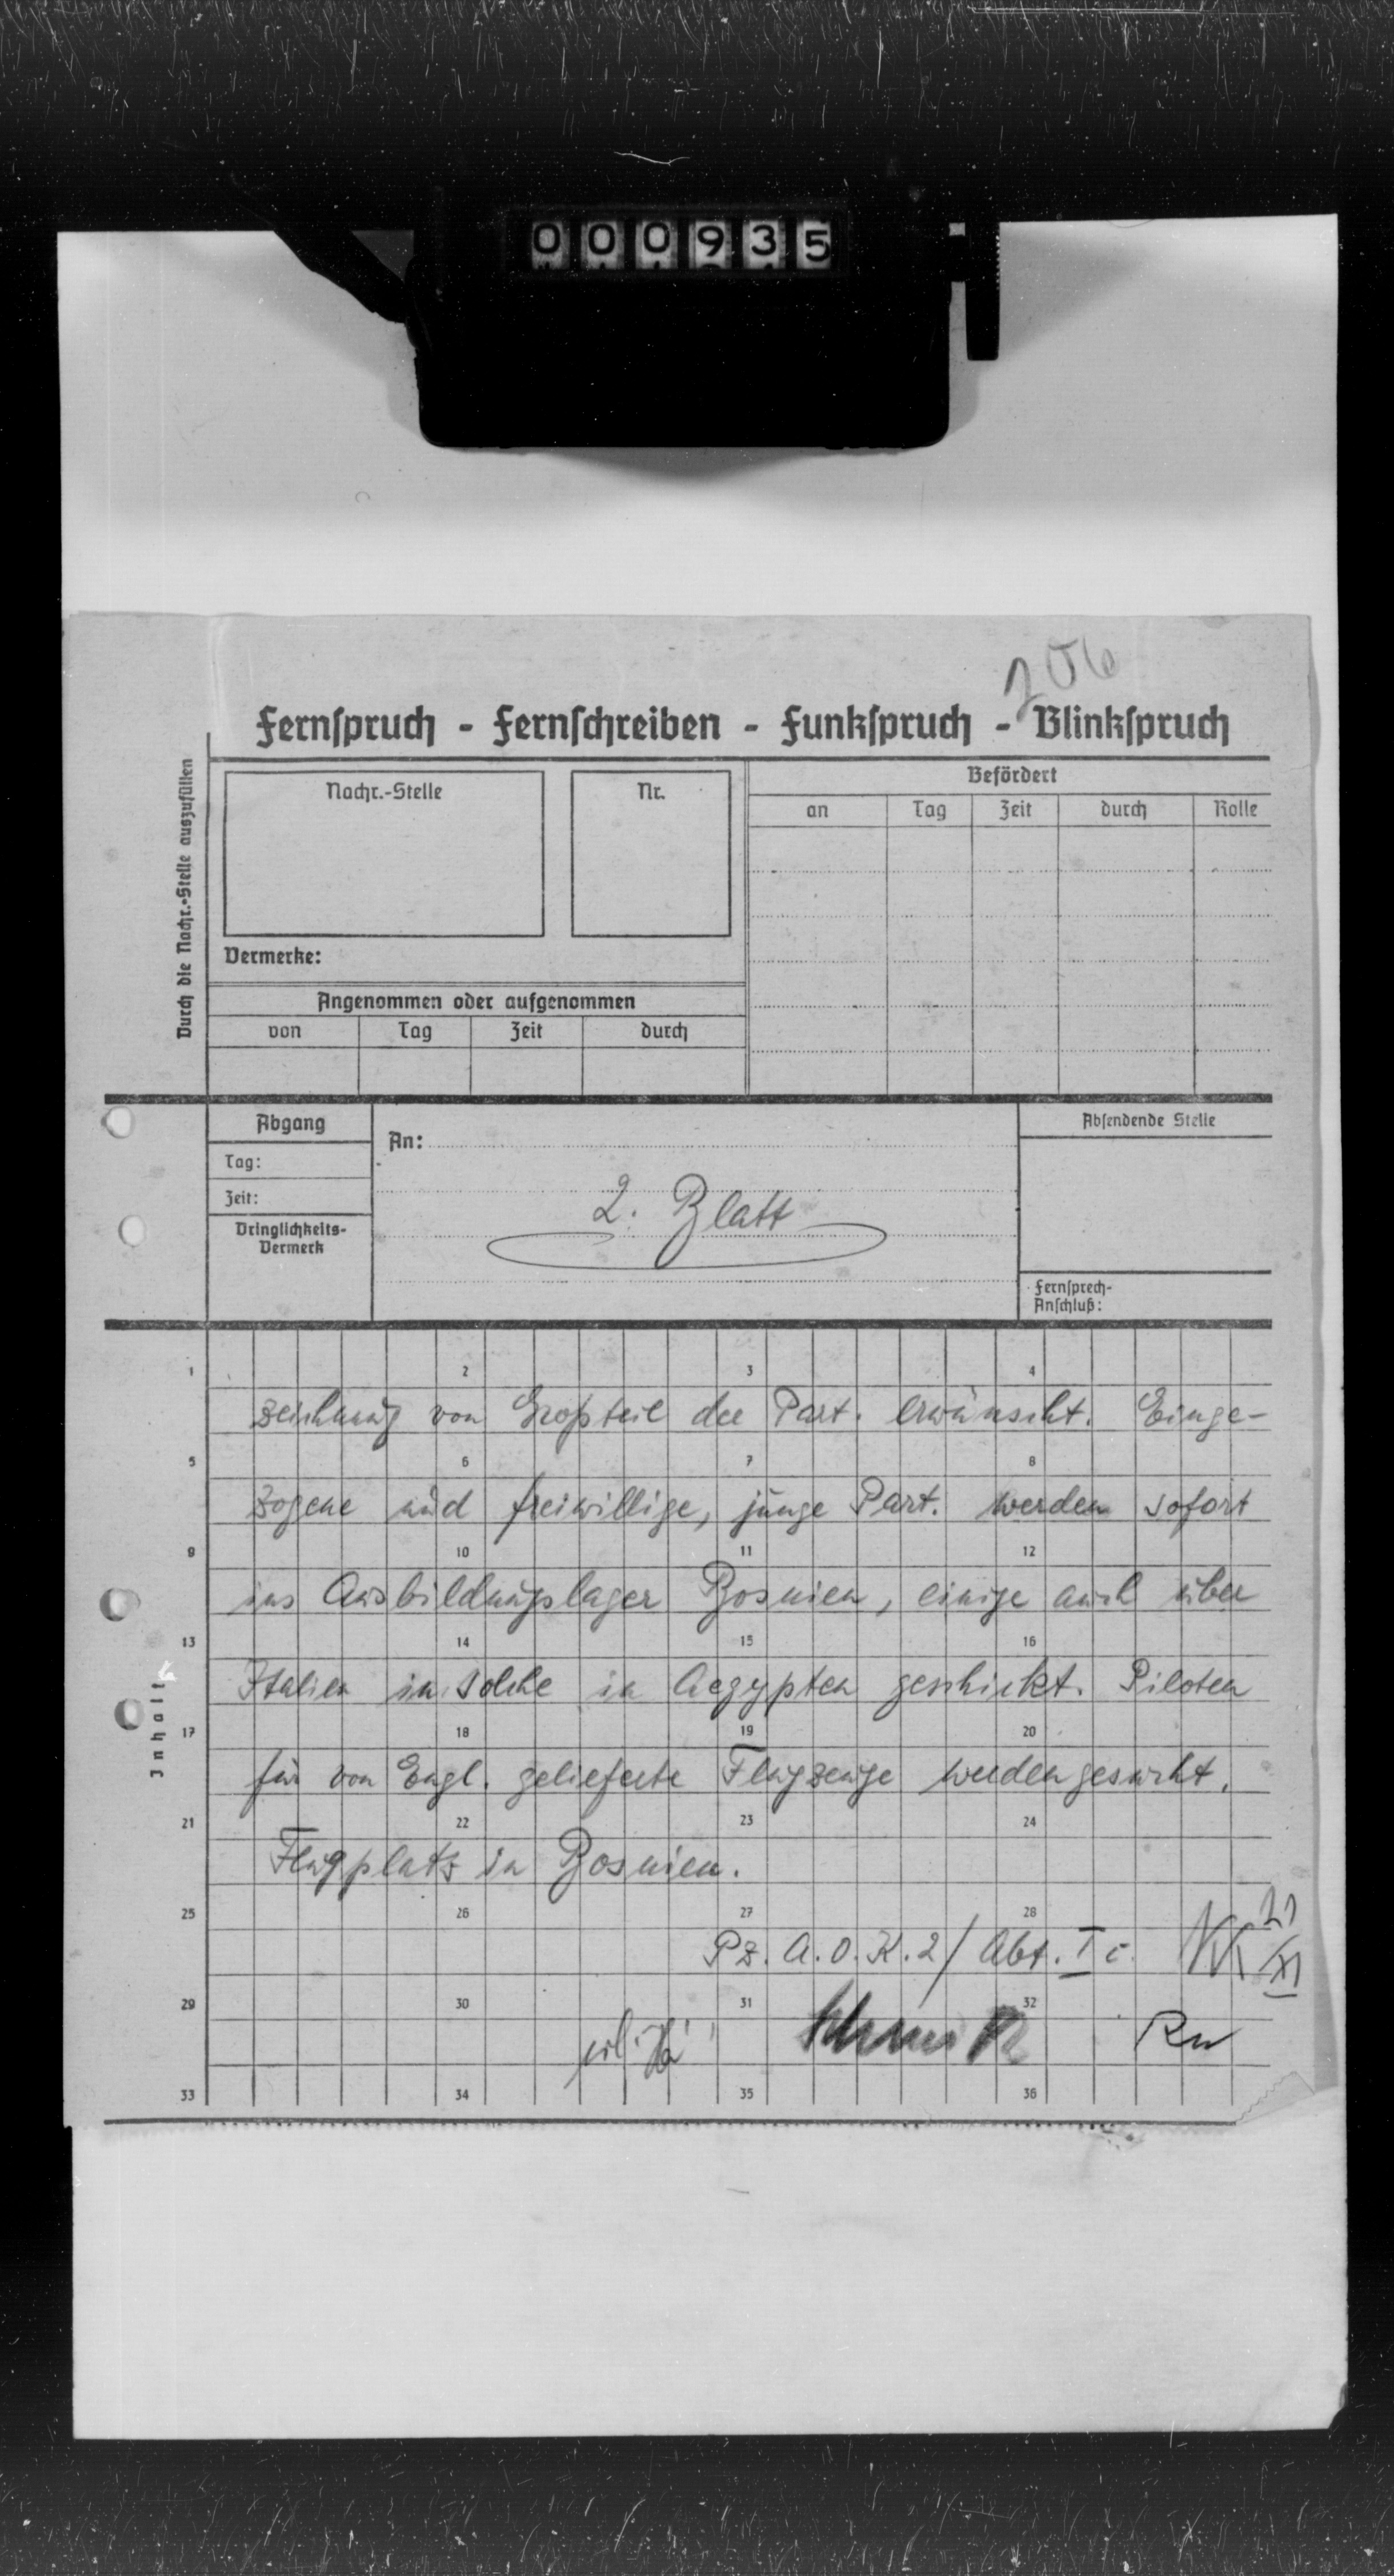 000935
206
Fernspruch - Fernschreiben - Funkspruch - Blinkspruch
Durch die Nachr.-Stelle auszufüllen
Nachr.-Stelle
Nr.
Befördert
an Tag Zeit durch Rolle
Vermerke:
Angenommen oder aufgenommen
von Tag Zeit durch
Abgang
Tag:
Zeit:
Dringlichkeits-
Vermerk
An:
2. Blatt
Absendende Stelle
Fernsprech-
Anschluß:
Inhalt
1 2 3 4
zeichnung von Großteil der Part. erwünscht. Einge-
5 6 7 8
zogene und freiwillige, junge Part. werden sofort
9 10 11 12
ins Ausbildungslager Bosnien, einige auch über
13 14 15 16
Italien in solche in Aegypten geschickt. Piloten
17 18 19 20
für von Engl. gelieferte Flugzeuge werden gesucht.
21 22 23 24
Flugplatz in Bosnien.
25 26 27 28
Pz. A.O.K.2/ Abt. Ic.
21/XI
29 30 31 32
33 34 35 36